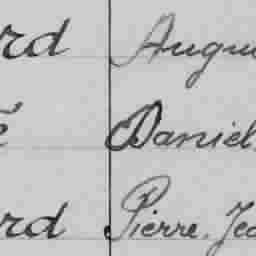 rd Augu
é Daniel.
rd Pierre. Jea